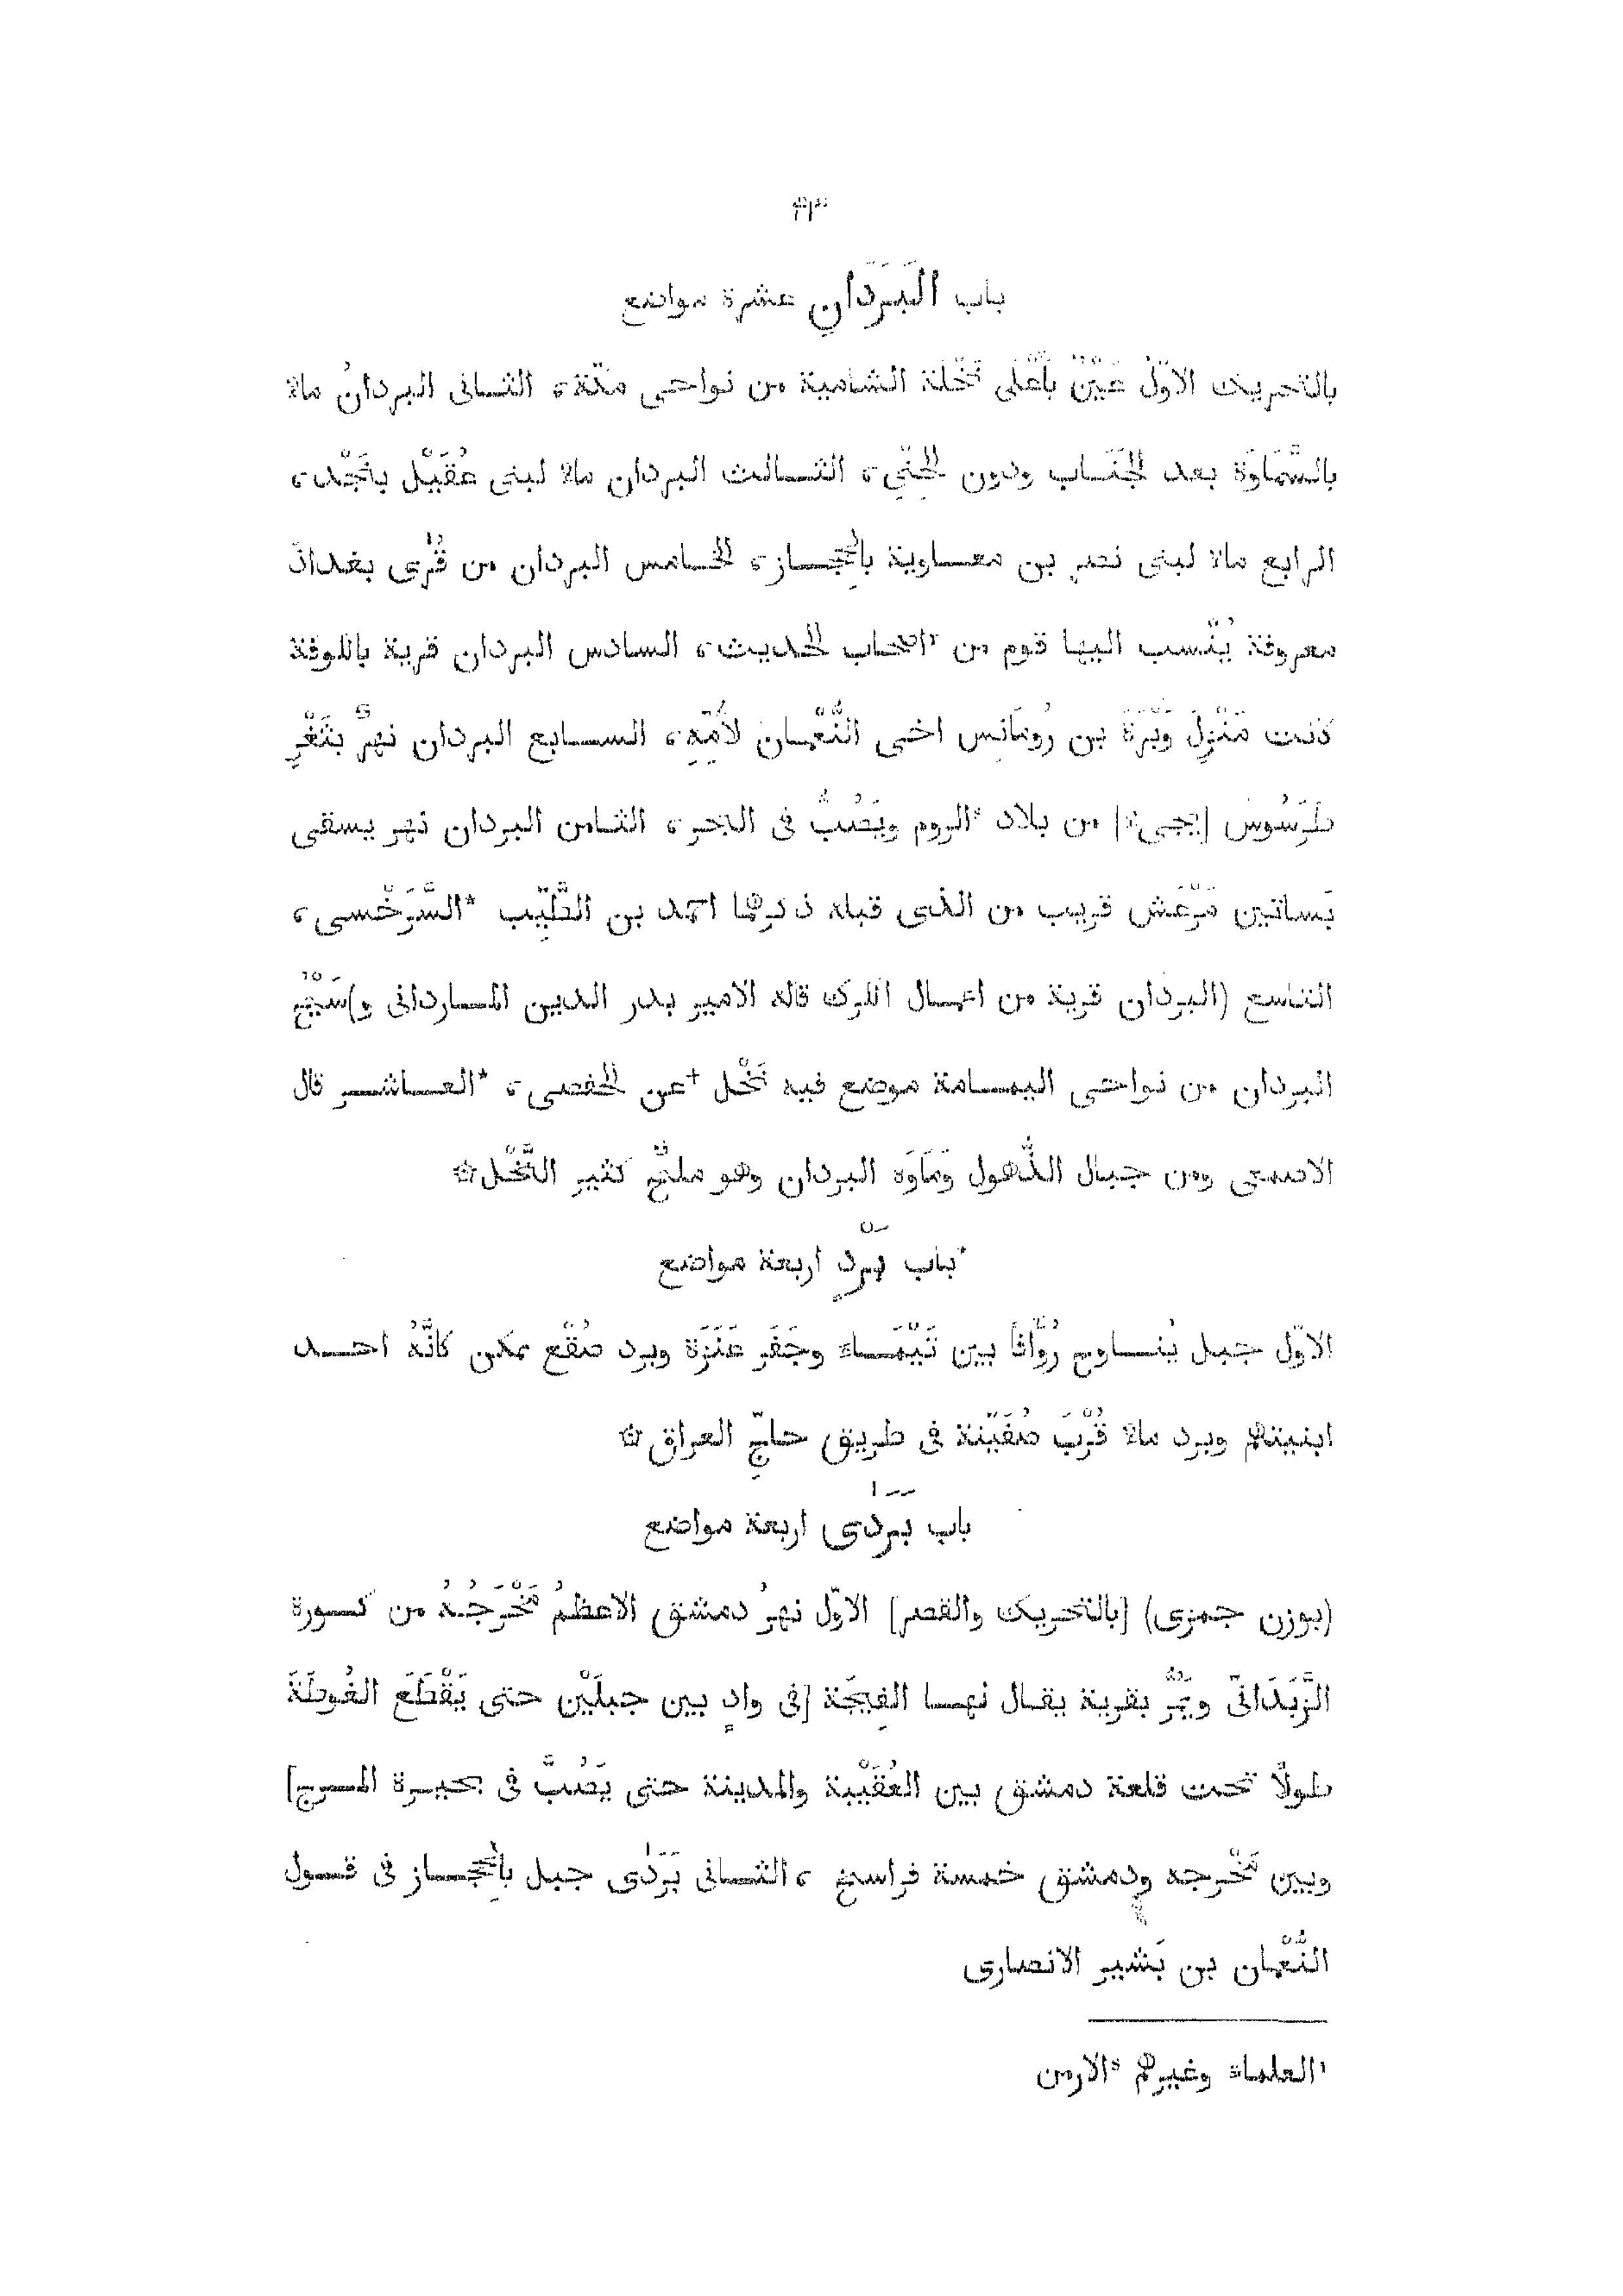 ٤٣
باب البَرَدَانِ عشرة مواضع
بالتحريك الاوّلُ عَيْنٌ بأَعْلَى نَخْلة الشامية من نواحى مكّة، الثانى البردانُ مالا
بالسَّمَاوَة بعد الجَنَاب ودون الجِنِّى، الثالث البردان مالا لبنى عُقَيْل بنَجْد،
الرابع مالا لبنى نصر بن معاوية بالحِجاز، الخامس البردان من قُرَى بغداذ
معروفة يُنْسب اليها قوم من ¹اصحاب الحديث، السادس البردان قرية بالكوفة
كانت مَنْزِلَ وَبَرَةَ بن رُومَانِس اخى النُّعْمان لأُمِّهِ، السابع البردان نهرٌ بثَغْرِ
طَرَسُوسَ [يجىء] من بلاد ²الروم ويَصُبُّ فى البحر، الثامن البردان نهر يسقى
بَساتين مَرْعَش قريب من الذى قبله ذكرهما احمد بن الطَّيِّب *السَّرَخْسى،
التاسع (البردان قرية من اعمال الكرك قاله الامير بدر الدين الماردانى و)سَيْح
البردان من نواحى اليمامة موضع فيه نَخْل †عن الحفصى، *العاشر قال
الاصمعى ومن جبال الذُّهول ومَاوَه البردان وهو ملحٌ كثير النَّخْل☆
*باب بَرْدٍ اربعة مواضع
الاوّل جبل يُناوح رُوَّافًا بين تَيْمَاء وجَفَر عَنَزَة وبرد صُقْع يمكن كانَّهُ احد
ابنيتهم وبرد مالا قُرْبَ صُفَيْنة فى طريق حاجّ العراق☆
باب بَرَدَى اربعة مواضع
(بوزن جمزى) [بالتحريك والقصر] الاوّل نهرُ دمشق الاعظمُ مَخْرَجُهُ من كورة
الزَّبَدَانىّ ويَمُرُّ بقرية يقال لها الفِيجَة [فى وادٍ بين جبلَيْن حتى يَقْطَعَ الغُوطَةَ
طولًا تحت قلعة دمشق بين العُقَيْبة والمدينة حتى يَصُبَّ فى بحيرة المرج]
وبين مَخْرجه ودمشق خمسة فراسخ، الثانى بَرَدَى جبل بالحِجاز فى قول
النُّعْمان بن بَشير الانصارى
¹العلماء وغيرهم ²الارمن